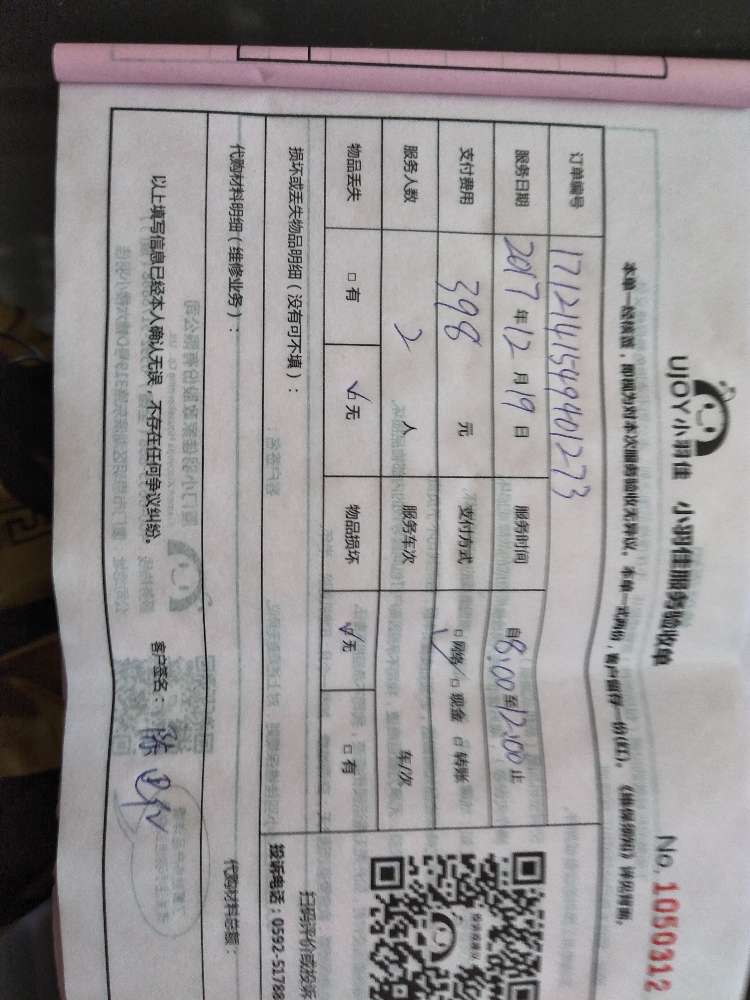 UJOY小羽佳 小羽佳服务验收单 No. 1050312
本单一经核签，即视为对本次服务验收无异议。本单一式两份，客户留存一份(红)。《维保须知》详见背面。
订单编号 171214154994012-73
服务日期 2017年12月19日 服务时间 自8:00至12:00止
支付费用 398 元 支付方式 □网络 □现金 □转账
服务人数 2 人 服务车次 车/次
物品丢失 □有 ☑无 物品损坏 ☑无 □有
损坏或丢失物品明细（没有可不填）：
代购材料明细（维修业务）： 代购材料总额：
以上填写信息已经本人确认无误，不存在任何争议纠纷。 客户签名： 陈
扫码评价或投诉
投诉电话：0592-51788